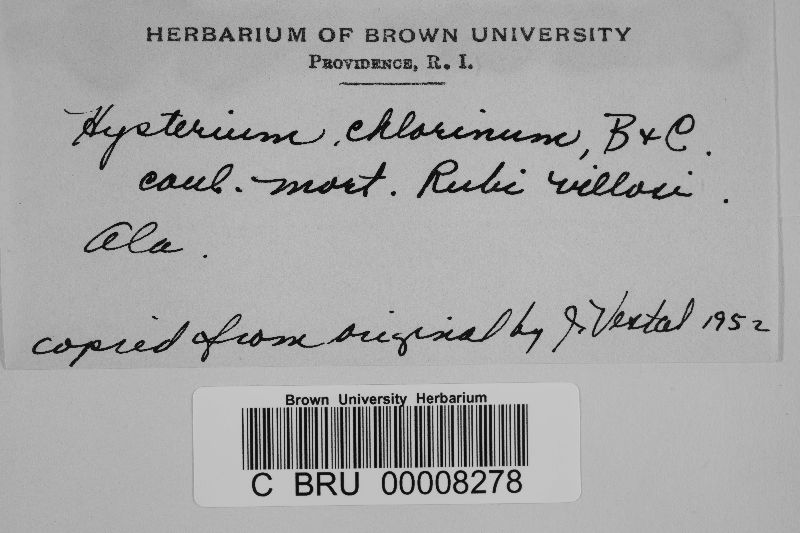 HERBARIUM OF BROWN UNIVERSITY
PROVIDENCE, R. I.
Hysterium chlorinum, B & C.
caul. mort. Rubi villosi.
Ala.
copied from original by J. Vestal 1952
Brown University Herbarium
C BRU 00008278